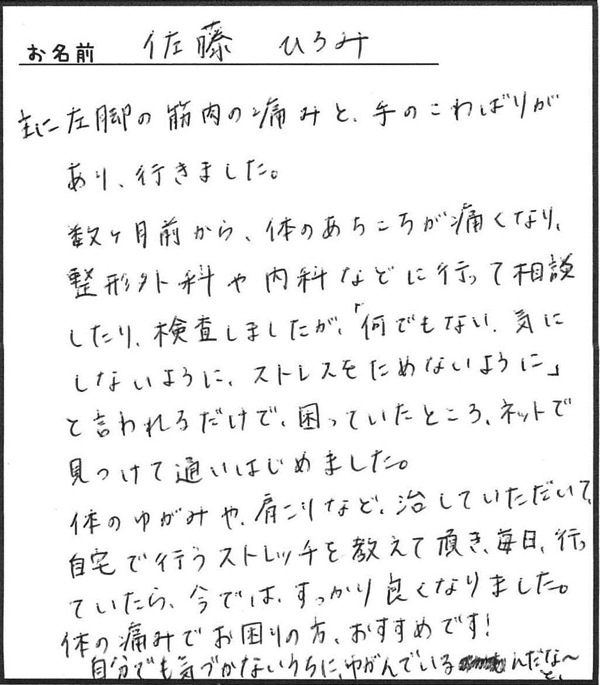 お名前 佐藤 ひろみ
主に左脚の筋肉の痛みと、手のこわばりが
あり、行きました。
数ヶ月前から、体のあちこちが痛くなり、
整形外科や内科などに行って相談
したり、検査しましたが、「何でもない、気に
しないように、ストレスをためないように」
と言われるだけで、困っていたところ、ネットで
見つけて通いはじめました。
体のゆがみや、肩こりなど、治していただいて、
自宅で行うストレッチを教えて頂き、毎日、行っ
ていたら、今では、すっかり良くなりました。
体の痛みでお困りの方、おすすめです!
自分でも気づかないうちに、ゆがんでいるんだな〜
と、